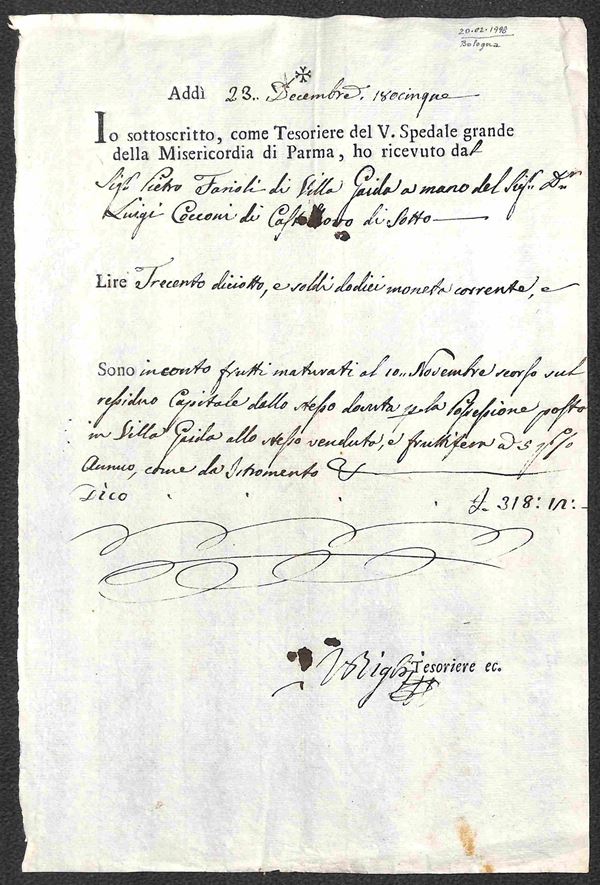 20.02.1998
Bologna
Addì 23.. Decembre. 180cinque
Io sottoscritto, come Tesoriere del V. Spedale grande
della Misericordia di Parma, ho ricevuto dal
Sig.r Pietro Farioli di Villa Gaida a mano del Sig.r D.r
Luigi Cocconi di Castelnovo di Sotto
Lire Trecento diciotto, e soldi dodici moneta corrente, e
Sono in conto frutti maturati al 10.. Novembre scorso sul
residuo Capitale dallo stesso dovuto p la Possessione posta
in Villa Gaida allo stesso venduta, e fruttifera a 5 p%
Annuo, come da Istromento
Dico
L. 318: 12: -
Righi Tesoriere ec.